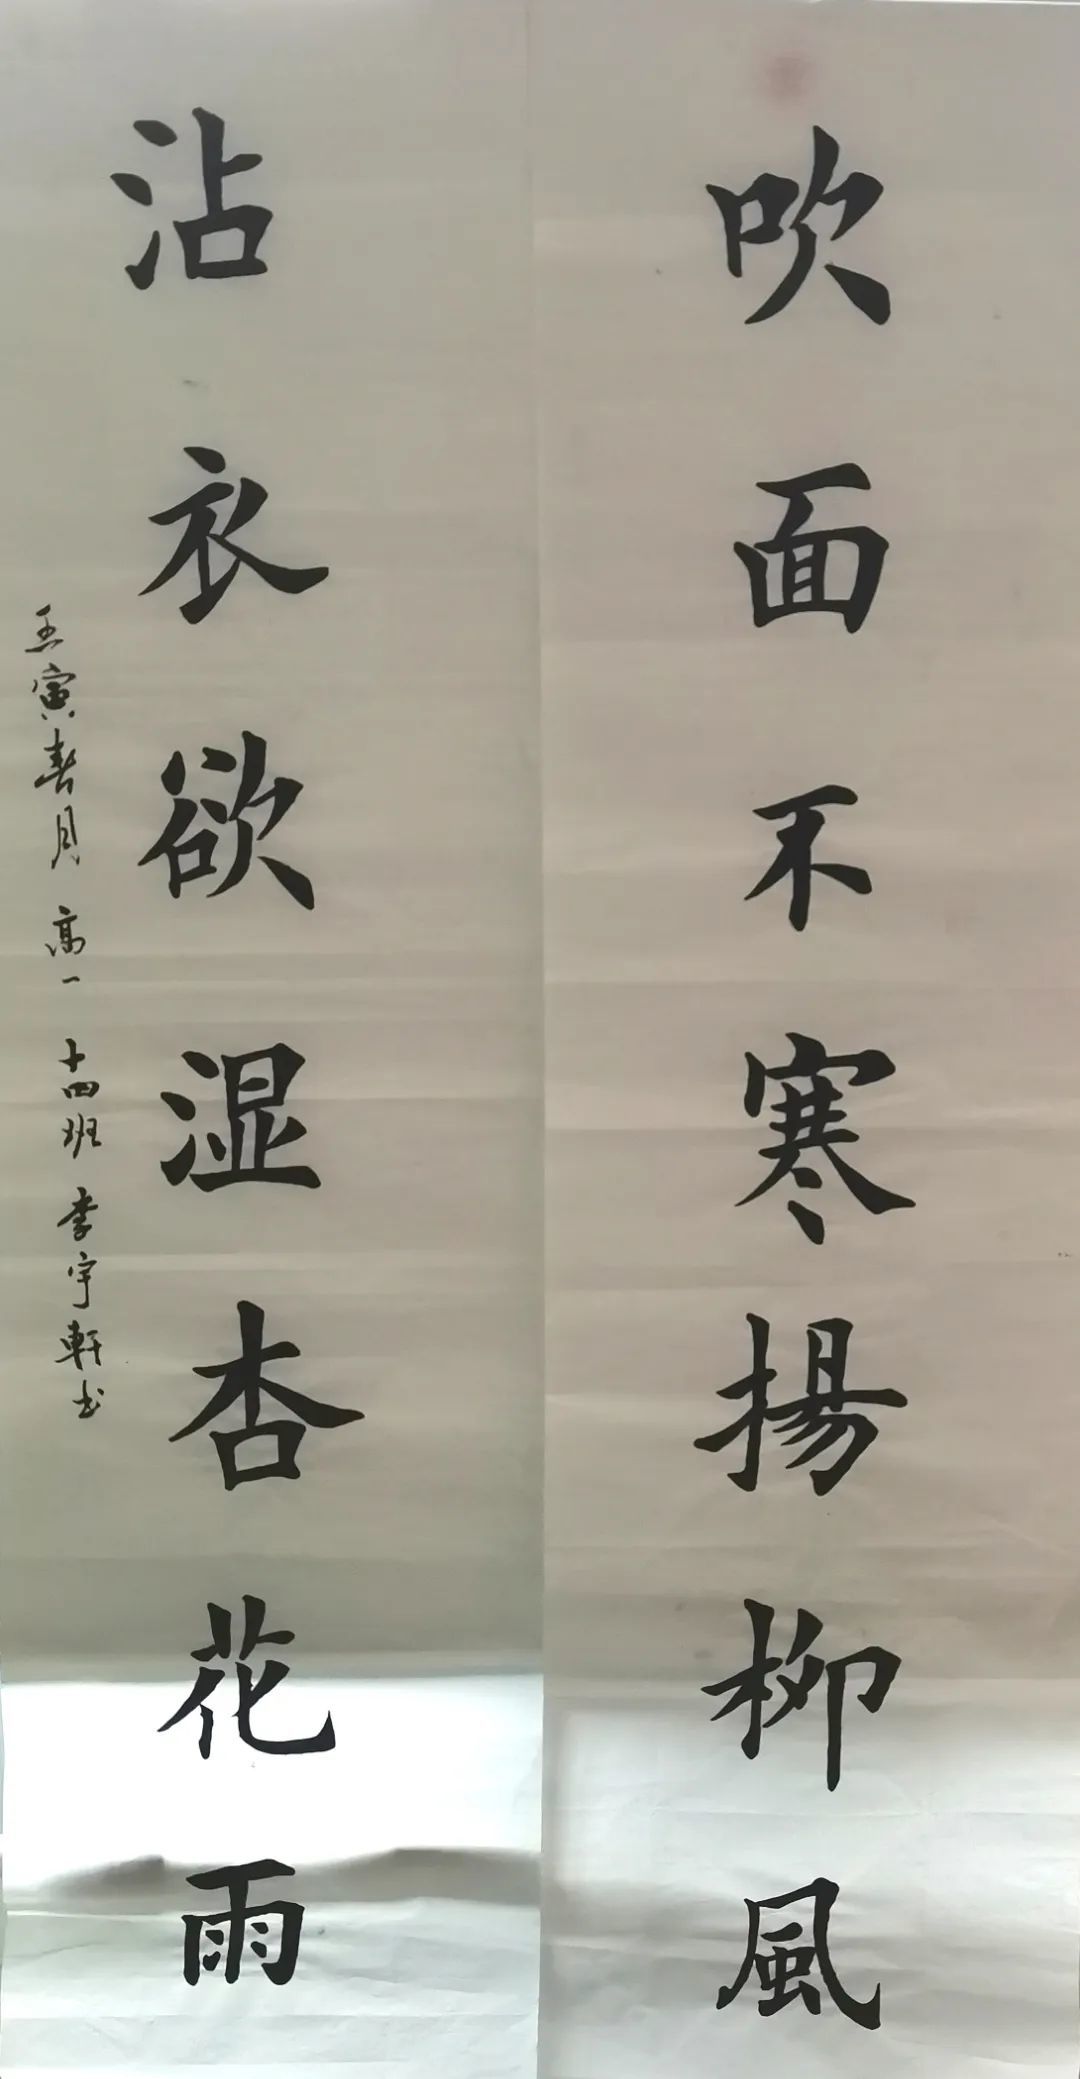 吹面不寒揚柳風
沾衣欲湿杏花雨
壬寅春月 高一 十四班 李宇軒书